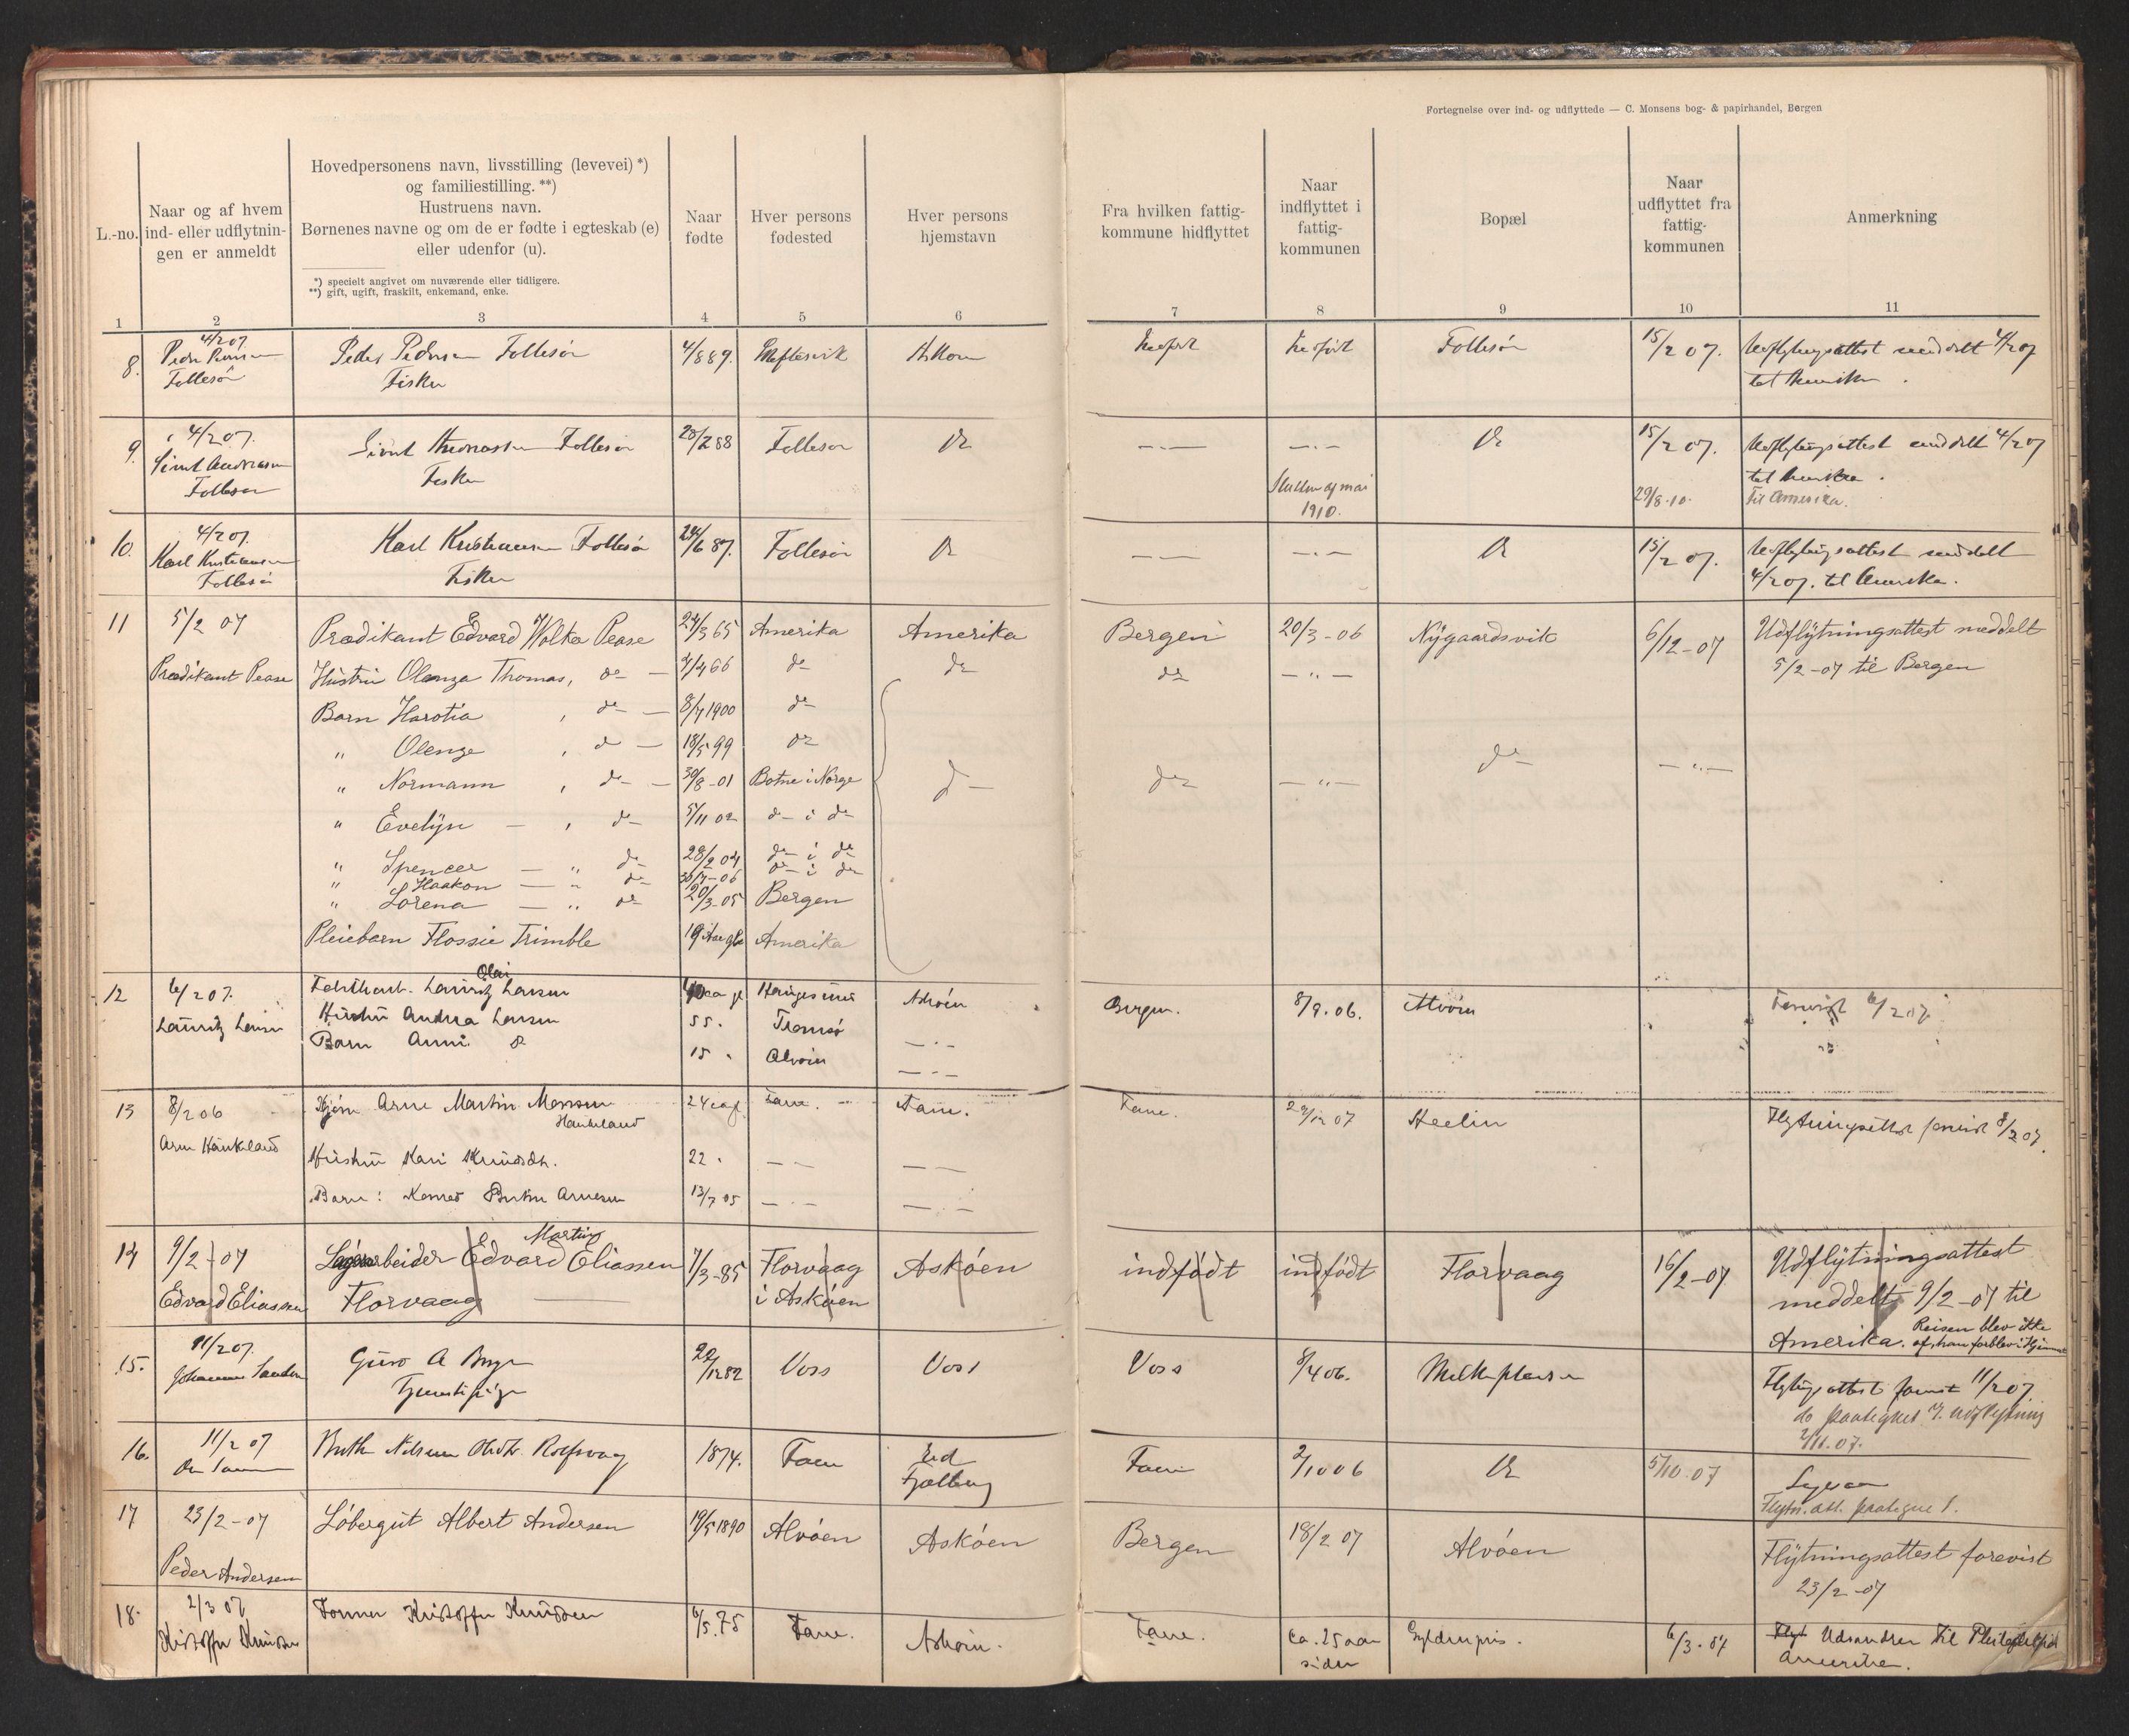 Fortegnelse over ind- og udflyttede — C. Monsens bog- & papirhandel, Bergen
L.-no.
Naar og af hvem
ind- eller udflytnin-
gen er anmeldt
Hovedpersonens navn, livsstilling (levevei) *)
og familiestilling. **)
Hustruens navn.
Børnenes navne og om de er fødte i egteskab (e)
eller udenfor (u).
*) specielt angivet om nuværende eller tidligere.
**) gift, ugift, fraskilt, enkemand, enke.
Naar
fødte
Hver persons
fødested
Hver persons
hjemstavn
Fra hvilken fattig-
kommune hidflyttet
Naar
indflyttet i
fattig-
kommunen
Bopæl
Naar
udflyttet fra
fattig-
kommunen
Anmerkning
1 2 3 4 5 6 7 8 9 10 11
8. 4/2 07. Peder Pedersen Follesø 4/8 89. Askøen Follesø 15/2 07. Udflytningsattest meddelt 4/2 07
Follesø Fisker til Amerika.
9. 4/2 07. Sivert Andreassen Follesø 28/2 88 Follesø do — " — — " — do 15/2 07. Udflytningsattest meddelt 4/2 07
Sivert Andreassen Fisker til Amerika.
Follesø Slutten af mai 29/8-10. Til Amerika.
1910.
10. 4/2 07. Karl Kristiansen Follesø 24/6 87. Follesø do — — — " — do 15/2 07. Udflytningsattest meddelt
Karl Kristiansen Fisker 4/2 07. til Amerika.
Follesø
11 5/2 07 Prædikant Edvard Wolka Pease 24/3 65 Amerika Amerika Bergen 20/3-06 Nygaardsvik 6/12-07 Udflytningsattest meddelt
Prædikant Pease Hustru Olenza Thomas, do — 9/4 66 do do do — " — 5/2-07 til Bergen
Barn Harotia , do — 8/7 1900 do
" Olenze , do — 18/5 99 do do — " —
" Normann , do — 30/8-01 Botne i Norge do do — " —
" Evelyn — , do 5/11 02 do i do
" Spencer — " do 28/2 04 do i do
" Haakon — " do 30/7-06 do i do
" Lorena — " do 20/3-05 Bergen
Pleiebarn Flossie Trimble 19 Aar gl. Amerika
Olai
12 6/2 07. Lauritz Larsen Askøen Bergen. 8/9. 06. Alvøen Forevist 6/2 07.
Lauritz Larsen Hustru Andrea Larsen 55. Tromsø — " —
Barn Anni do 15 " Alvøen — " —
13 8/2 06 Arne Martin Monsen 24 Fane. Fane. Fane. 29/12 07 Flytningsattest forevist 8/2 07.
Haukeland
Arne Haukeland Hustru Kari Knudsdtr. 22 " — — — —
Barn: Arnesen 13/7 05 — " — — " —
Martin
14 9/2-07 arbeider Edvard Eliassen 7/3-85 Florvaag Askøen indfødt indfødt Florvaag 16/2-07 Udflytningsattest
Edvard Eliassen Florvaag — i Askøen meddelt 9/2-07 til
Amerika. Reisen blev ikke
af, han forblev i Hjemmet
15. 11/2 07. Guro A 22/12 82 Voss Voss Voss 8/4 06. Flytningsattest forevist 11/2 07.
Johannes Tjenestepige do paategnet udflytning
2/11. 07.
16. 11/2 07 1874. Fane Fane 2/10 06 do 5/10-07
Flytn.att. paategnet
17 23/2-07 Løbergut Albert Andersen 19/5 1890 Alvøen Askøen Bergen 18/2 07 Alvøen Flytningsattest forevist
Peder Andersen 23/2-07
18. 2/3 07 Kristoffer Knudsen 6/5. 75 Fane. Askøen. Fane. ca. 25 aar Gyldenpris. 6/3-07 Udvandrer til Philadelphia
Kristoffer Knudsen siden Amerika.